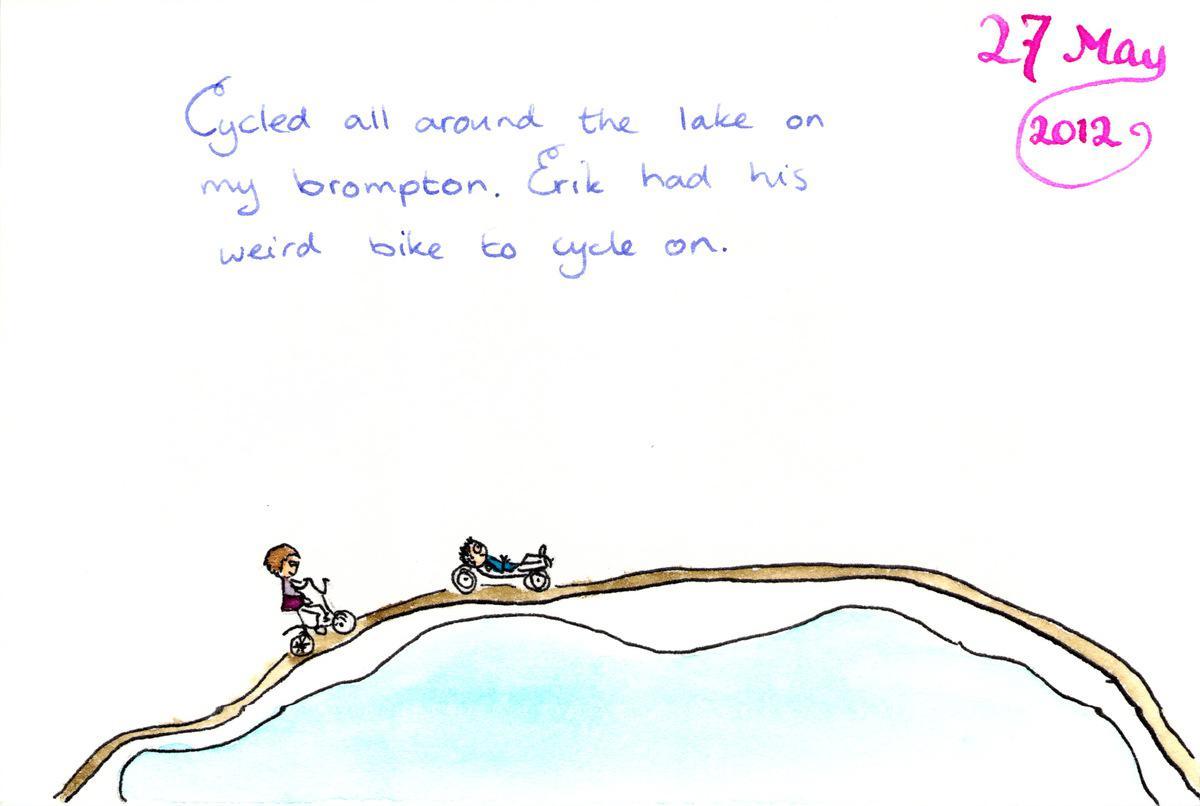 27 May
2012
Cycled all around the lake on
my brompton. Erik had his
weird bike to cycle on.